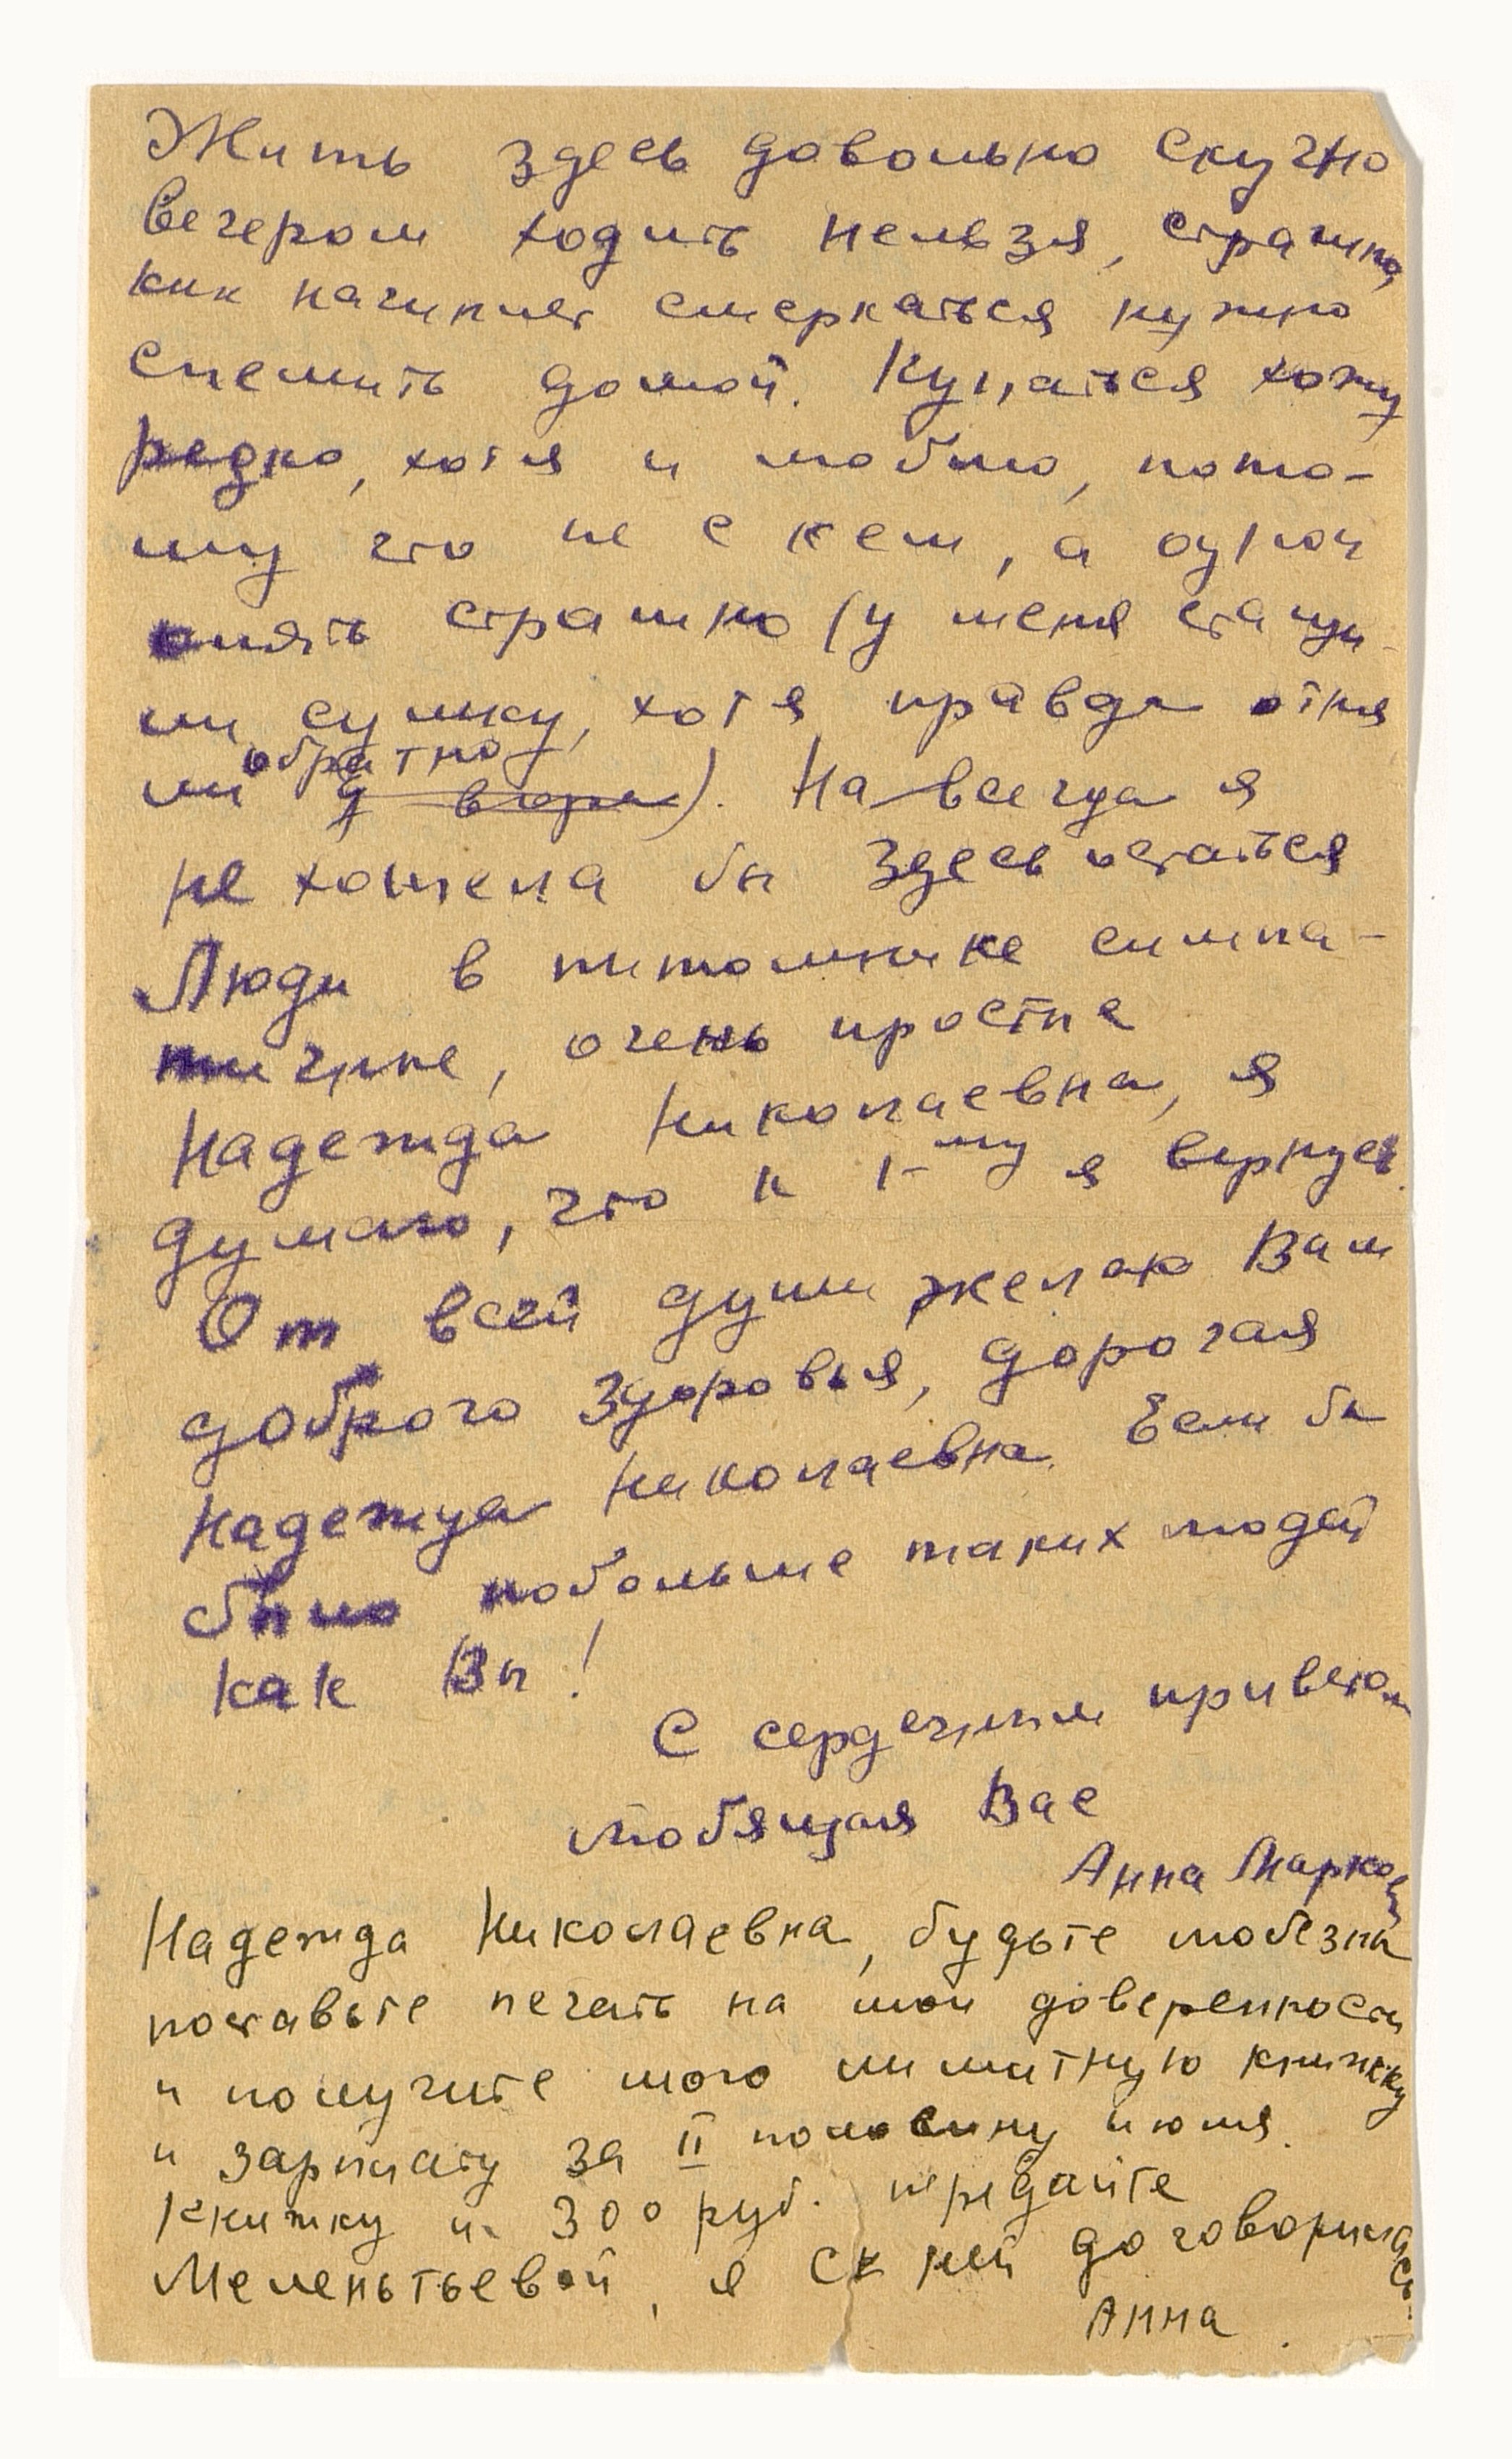 Жить здесь довольно скучно
вечером ходить нельзя, страшно,
как начинает смеркаться нужно
спешить домой. Купаться хожу
редко, хотя и люблю, пото-
му что не с кем, а одной
опять страшно (у меня стащи-
ли сумку, хотя правда отня
ли обратно у вора). На всегда я
не хотела бы здесь остаться
Люди в питомнике симпа-
тичные, очень простые
Надежда Николаевна, я
думаю, что к 1-му я вернусь.
От всей души желаю Вам
доброго здоровья, дорогая
Надежда Николаевна. Если бы
было побольше таких людей
как Вы!
С сердечным приветом
любящая Вас
Анна Маркови
Надежда Николаевна, будьте любезны
поставьте печать на мои доверенности
и получите мою лимитную книжку
и зарплату за II половину июля.
Книжку и 300 руб. передайте
Меленьтьевой, я с ней договорилась.
Анна.